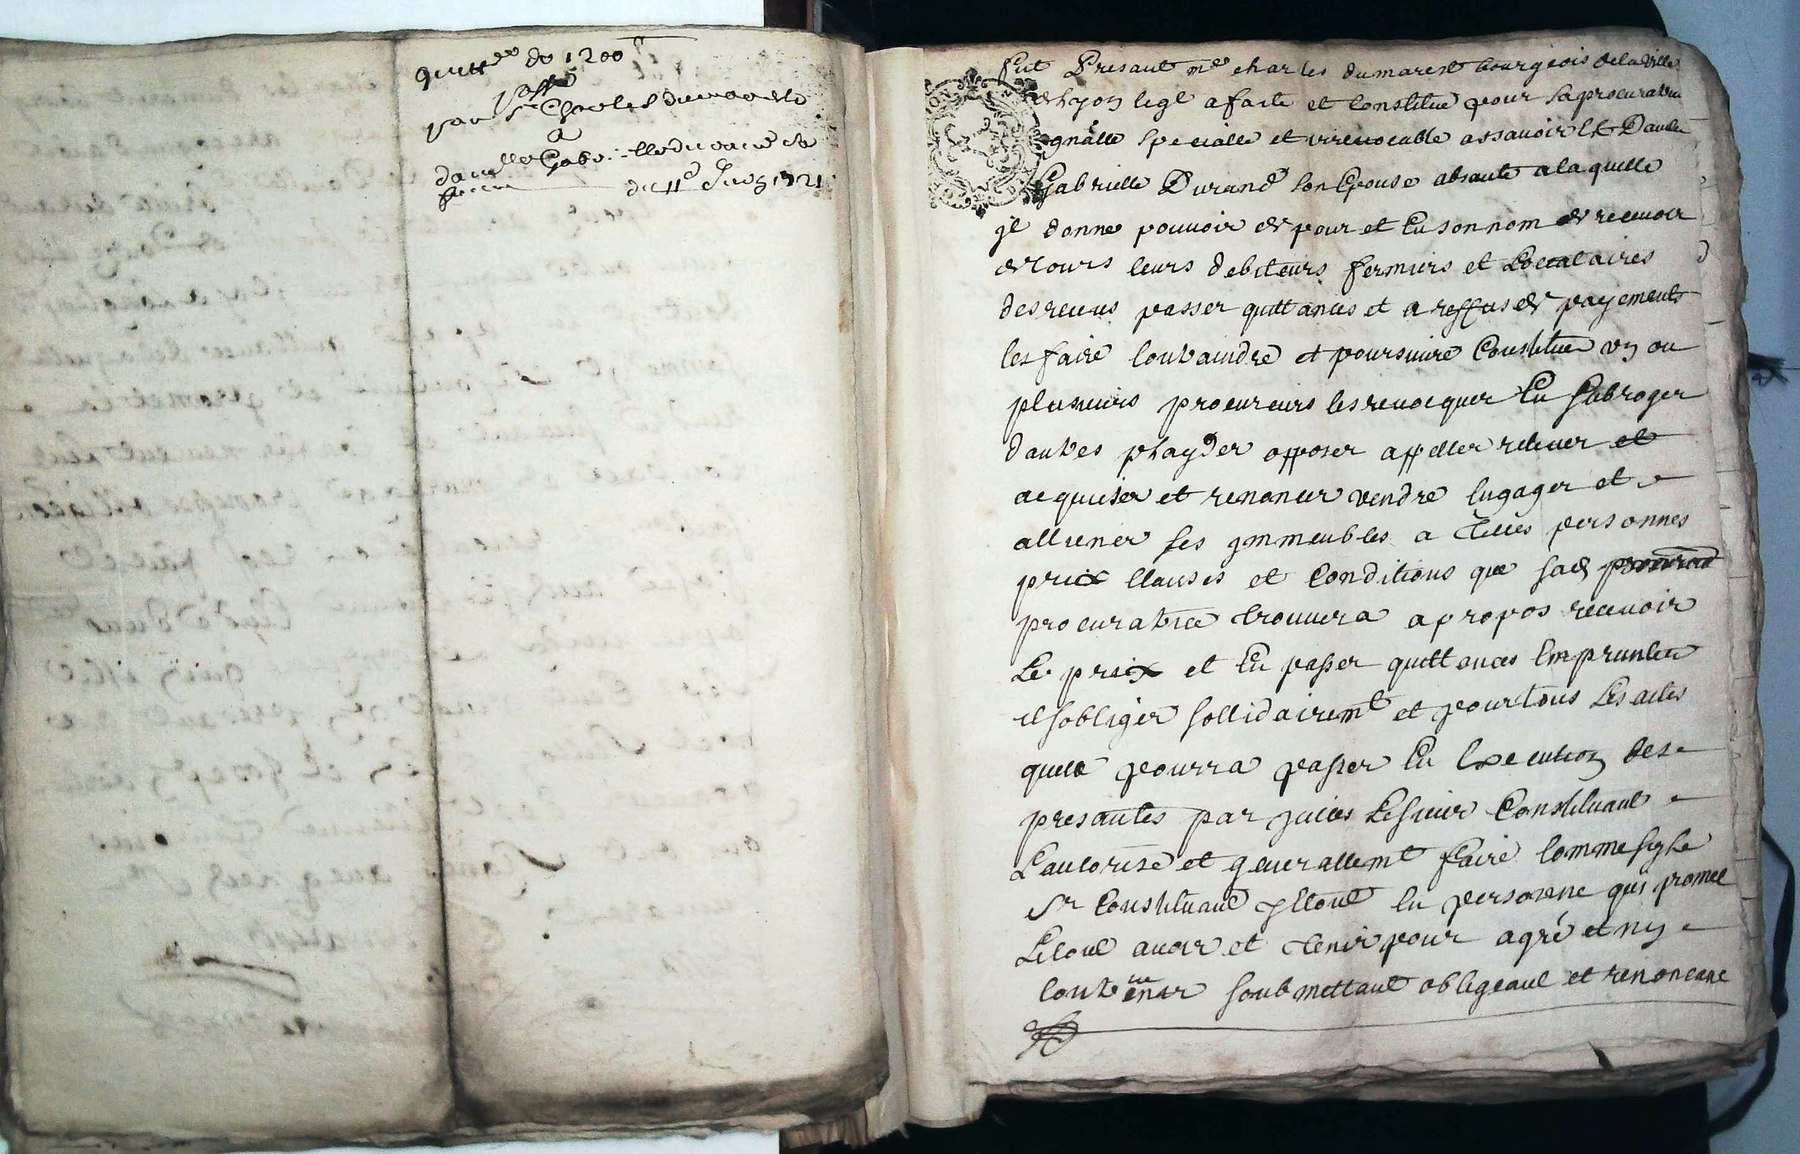 quitt^ce de 1200^ll
passé
par S^r Charles dumarest
a
dam^lle Gabrielle durand sa
femme
du 11^e Juin 1721
fut Presant m^re charles dumarest bourgeois de la ville
de lyon leql a faite et Constitué pour sa procuratrice
gnâlle specialle et irrevocable assavoir
Gabrielle Durand son Epouse absante a laquelle
jl donne pouvoir de pour et En son nom de recevoir
de tous leurs debiteurs fermiers et Locataires
des receus passer quittances et a reffus de payements
les faire contraindre et poursuivre Constitué un ou
plusieurs procureurs les revocquer En subroger
dautres playder opposer appeller relever et
acquieser et renoncer vendre Engager et
alliener ses jmmeubles a telles personnes
prix clauses et Conditions que sad
procuratrice trouvera apropos recevoir
Le prix et En passer quittances Emprunter
et sobliger sollidairem^t et pour tous Les actes
quelle pourra passer En Execution des
presantes par jcelles Le sieur Constituant
Lautorise et generallem^t faire comme sy le
S^r Constituant y Estoit En personne qui promet
Le tout avoir et tenir pour agréé et ny
contrevenir soubmettant obligeant et renoncant